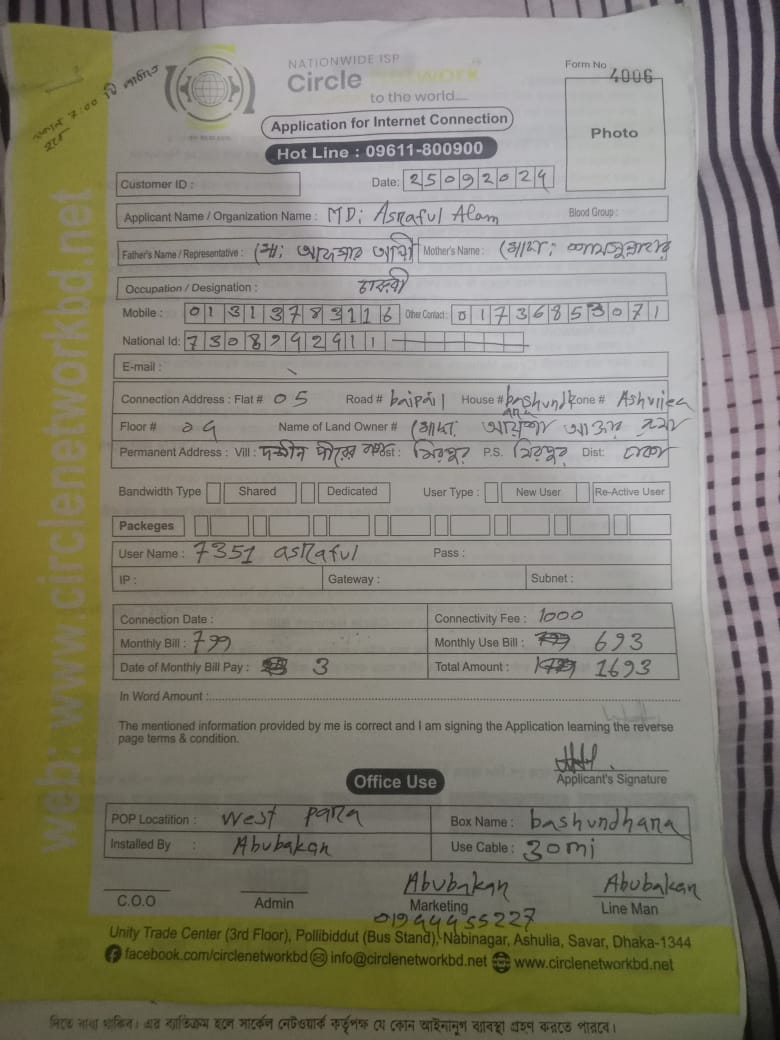 NATIONWIDE ISP
Circle NETWORK
to the world....
Form No 4006
Photo
Application for Internet Connection
Hot Line : 09611-800900
Customer ID :
Date: 25092024
Applicant Name / Organization Name : MD: Asraful Alam Blood Group :
Father's Name / Representative : মো: আফসার আলী Mother's Name : মোছা:
Occupation / Designation : চাকরী
Mobile : 01313783116 Other Contact : 01736853071
National Id: 7308292911
E-mail :
Connection Address : Flat # 05 Road # baipail House # bashundhara Zone # Ashulia
Floor # 09 Name of Land Owner # মোছা: আয়শা আক্তার
Permanent Address : Vill : দক্ষীন পীরের বাগ Post : মিরপুর P.S. মিরপুর Dist: ঢাকা
Bandwidth Type Shared Dedicated User Type : New User Re-Active User
Packeges
User Name : 7351 asraful Pass :
IP : Gateway : Subnet :
Connection Date : Connectivity Fee : 1000
Monthly Bill : 799 Monthly Use Bill : 799 693
Date of Monthly Bill Pay : 3 Total Amount : 1799 1693
In Word Amount :
The mentioned information provided by me is correct and I am signing the Application learning the reverse
page terms & condition.
Applicant's Signature
Office Use
POP Locatition : West para Box Name : bashundhara
Installed By : Abubakar Use Cable : 30mi
Abubakar Abubakar
C.O.O Admin Marketing Line Man
01944455227
Unity Trade Center (3rd Floor), Pollibiddut (Bus Stand), Nabinagar, Ashulia, Savar, Dhaka-1344
facebook.com/circlenetworkbd info@circlenetworkbd.net www.circlenetworkbd.net
দিতে বাধ্য থাকিব। এর ব্যতিক্রম হলে সার্কেল নেটওয়ার্ক কর্তৃপক্ষ যে কোন আইনানুগ ব্যবস্থা গ্রহণ করতে পারবে।
web: www.circlenetworkbd.net